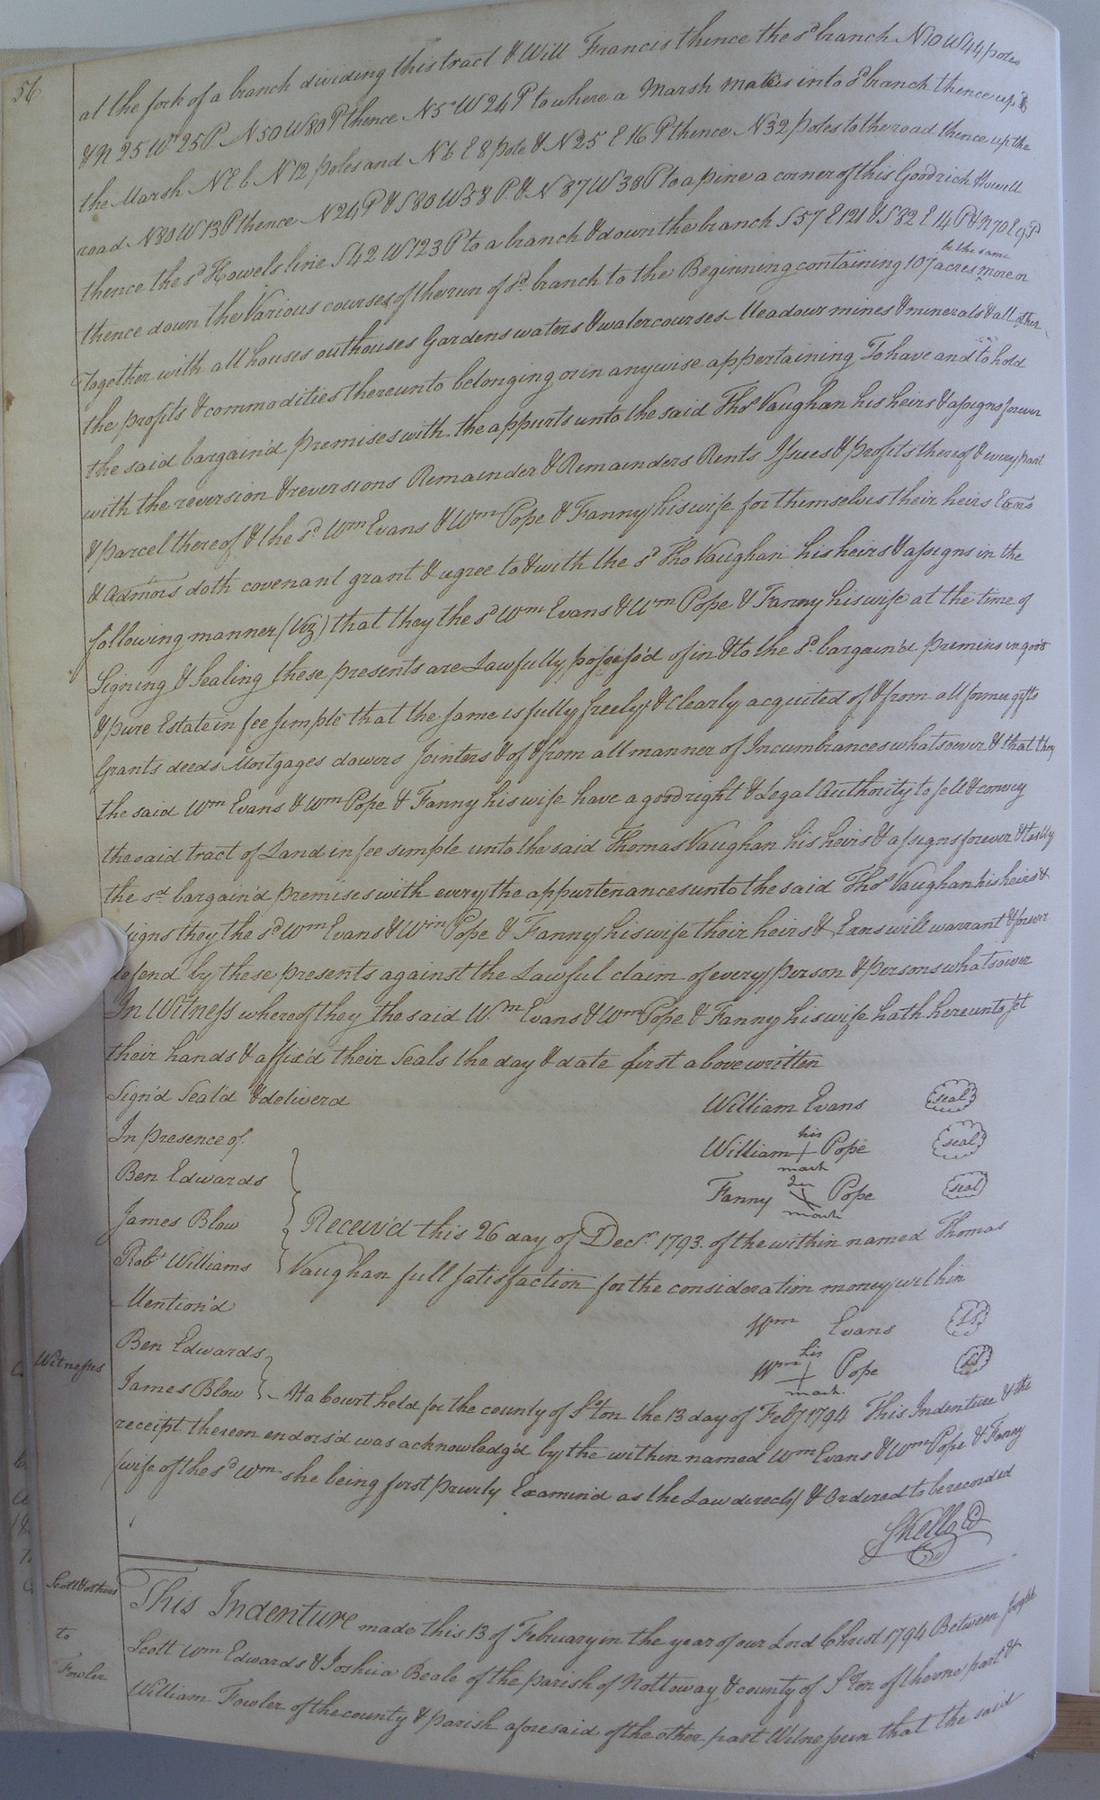 56
at the fork of a branch dividing this tract & Will Francis thence the sd branch N10 W44 poles
& N 25 W 25 P N50 W80 P thence N5 W 24 P to where a Marsh makes into sd branch thence up
the Marsh N E 6 N 12 poles and N 6 E 8 pole & N 25 E 16 P thence N32 poles to the road thence up the
road N80 W 13 P thence N24 P & S80 W58 P & N 37 W 38 P to a pine a corner of this Goodrich Howell
thence the sd Howels line S42 W123 P to a branch & down the branch S57 E 121 & S82 E 14 P & N70 E 9 P
thence down the Various courses of the run of sd branch to the Beginning containing 107 acres be the same more or
Together with all houses outhouses Gardens waters & watercourses Meadows mines & minerals & all other
the profits & commodities thereunto belonging or in anywise appertaining To have and to hold
the said bargain'd premises with the appurts unto the said Thos Vaughan his heirs & assigns forever
with the reversion & reversions Remainder & Remainders Rents Issues & profits thereof & every part
& parcel thereof & the sd Wm Evans & Wm Pope & Fanny his wife for themselves their heirs Exrs
& Admors doth covenant grant & agree to & with the sd Tho Vaughan his heirs & assigns in the
following manner (Viz) that they the sd Wm Evans & Wm Pope & Fanny his wife at the time of
Signing & Sealing these presents are Lawfully possess'd of in & to the sd bargain'd premises in good
& pure Estate in fee simple that the same is fully freely & Clearly acquited of & from all former gifts
Grants deeds Mortgages dowers Jointers & of & from all manner of Incumbrances whatsoever & that they
the said Wm Evans & Wm Pope & Fanny his wife have a good right & Legal Authority to sell & convey
the said tract of Land in fee simple unto the said Thomas Vaughan his heirs & assigns forever & lastly
the sd bargain'd premises with every the appurtenances unto the said Thos Vaughan his heirs &
signs they the sd Wm Evans & Wm Pope & Fanny his wife their heirs & Exrs will warrant & forever
defend by these presents against the Lawful claim of every person & persons whatsoever
In Witness whereof they the said Wm Evans & Wm Pope & Fanny his wife hath hereunto set
their hands & affix'd their Seals the day & date first above written
Sign'd Seal'd & deliverd William Evans seal
In presence of his
Ben Edwards William + Pope seal
mark
James Blow Fanny her Pope seal
mark
Receiv'd this 26 day of Decr 1793 of the within named Thomas
Robt Williams Vaughan full satisfaction for the consideration money within
Mention'd Wm Evans LS
Witnesses Ben Edwards Wm his + Pope LS
mark
James Blow At a Court held for the county of Sºton the 13 day of Feby 1794 This Indenture & the
receipt thereon endors'd was acknowledg'd by the within named Wm Evans & Wm Pope & Fanny
wife of the sd Wm she being first privily Examin'd as the Law directs & Ordered to be recorded
S Kello CC
Scott & others
to
Fowler
This Indenture made this 13 of February in the year of our Lord Christ 1794 Between
Scott Wm Edwards & Joshua Beale of the parish of Nottoway & county of Sºton of the one part &
William Fowler of the county & parish aforesaid of the other part Witnesseth that the said